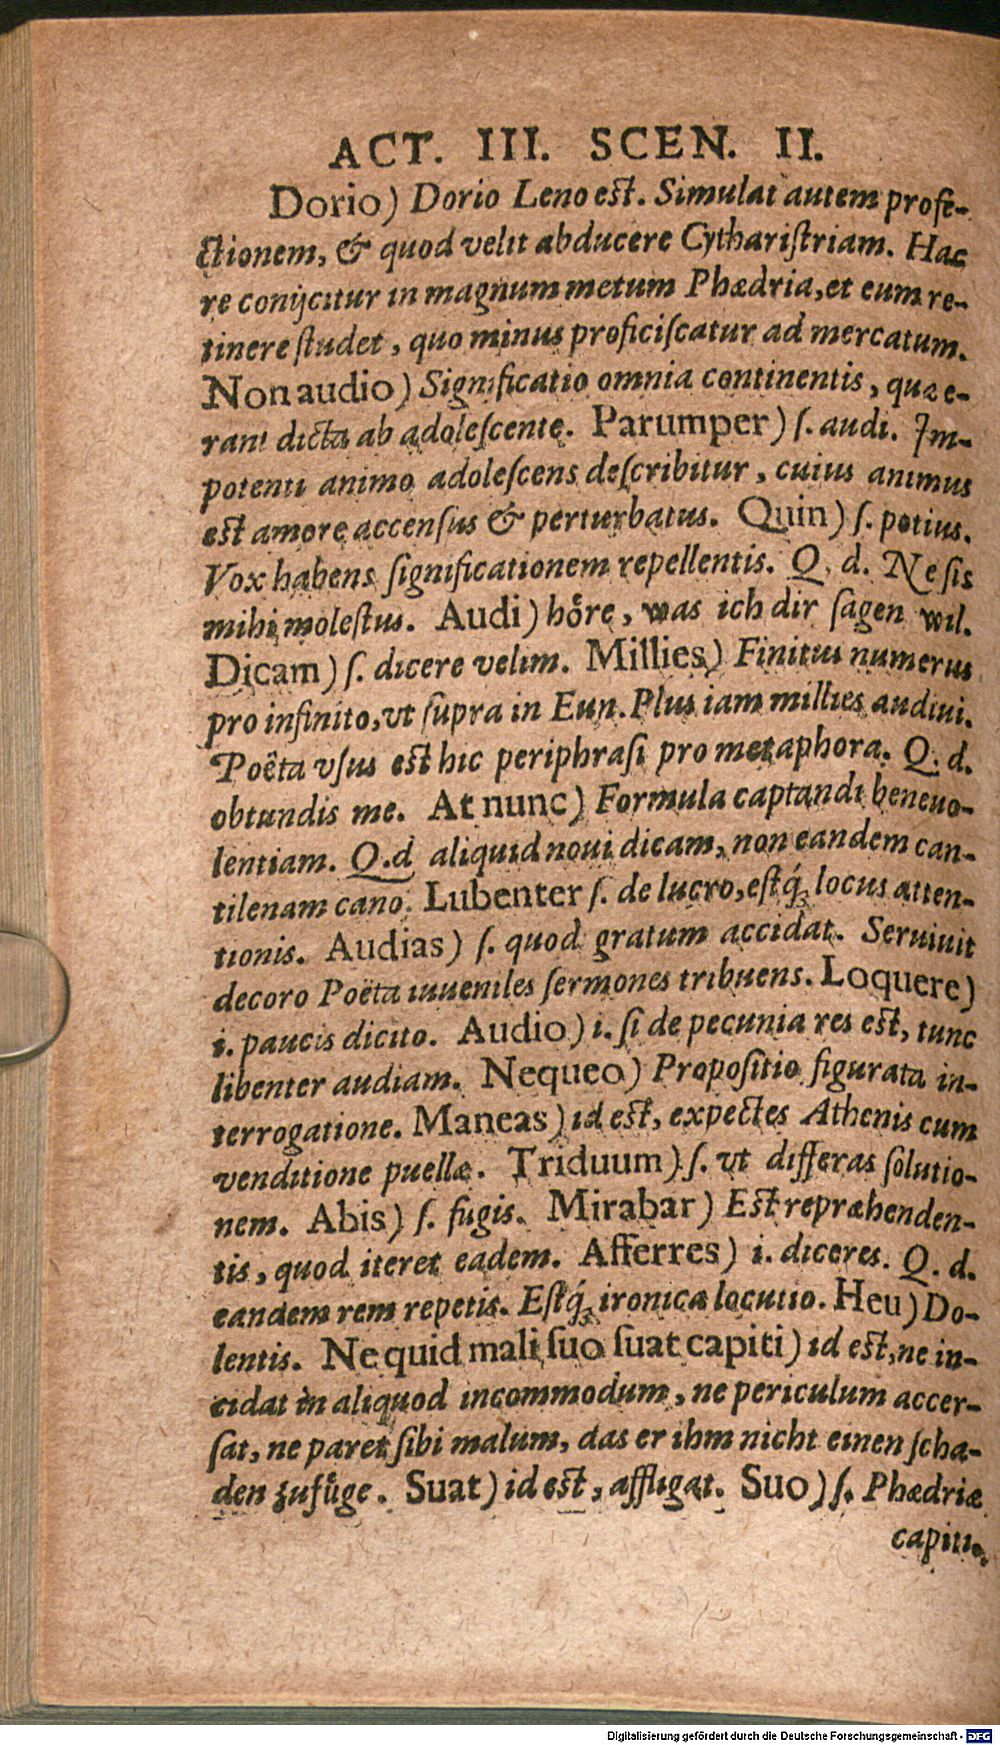 ACT. III. SCEN. II.
Dorio) Dorio Leno est. Simulat autem profe-
ctionem, & quod velit abducere Cytharistriam. Hac
re conijcitur in magnum metum Phædria, et eum re-
tinere studet, quo minus proficiscatur ad mercatum.
Non audio) Significatio omnia continentis, quæ e-
rant dicta ab adolescente. Parumper) s. audi. Im-
potenti animo adolescens describitur, cuius animus
est amore accensus & perturbatus. Quin) s. potius.
Vox habens significationem repellentis. Q. d. Ne sis
mihi molestus. Audi) höre, was ich dir sagen wil.
Dicam) s. dicere velim. Millies) Finitus numerus
pro infinito, vt supra in Eun. Plus iam millies audiui.
Poëta vsus est hic periphrasi pro metaphora. Q. d.
obtundis me. At nunc) Formula captandi beneuo-
lentiam. Q. d aliquid noui dicam, non eandem can-
tilenam cano. Lubenter s. de lucro, estq́; locus atten-
tionis. Audias) s. quod gratum accidat. Seruiuit
decoro Poëta iuueniles sermones tribuens. Loquere)
i. paucis dicito. Audio) i. si de pecunia res est, tunc
libenter audiam. Nequeo) Propositio figurata in-
terrogatione. Maneas) id est, expectes Athenis cum
venditione puellæ. Triduum) s. vt differas solutio-
nem. Abis) s. fugis. Mirabar) Est repræhenden-
tis, quod iteret eadem. Afferres) i. diceres. Q. d.
eandem rem repetis. Estq́; ironica locutio. Heu) Do-
lentis. Ne quid mali suo suat capiti) id est, ne in-
cidat in aliquod incommodum, ne periculum accer-
sat, ne paret sibi malum, das er ihm nicht einen scha-
den zufüge. Suat) id est, affligat. Suo) s. Phædriæ
capiti.
Digitalisierung gefördert durch die Deutsche Forschungsgemeinschaft - DFG